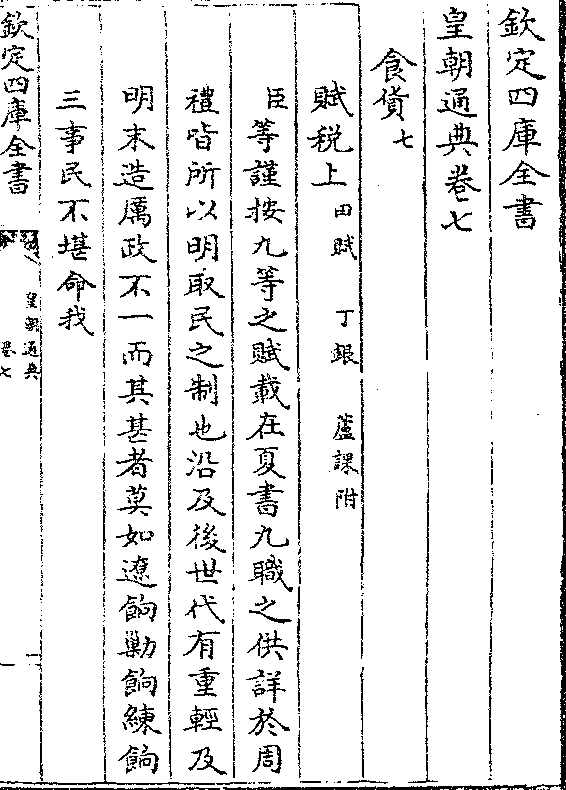 欽定四庫全書
皇朝通典卷七
食貨七
賦税上田賦 丁銀 蘆課附
臣等謹按九等之賦載在夏書九職之供詳於周
禮皆所以明取民之制也沿及後世代有重輕及
明末造厲政不一而其甚者莫如遼餉勦餉練餉
三事民不堪命我
欽定四庫全書
皇朝通典
卷七
一